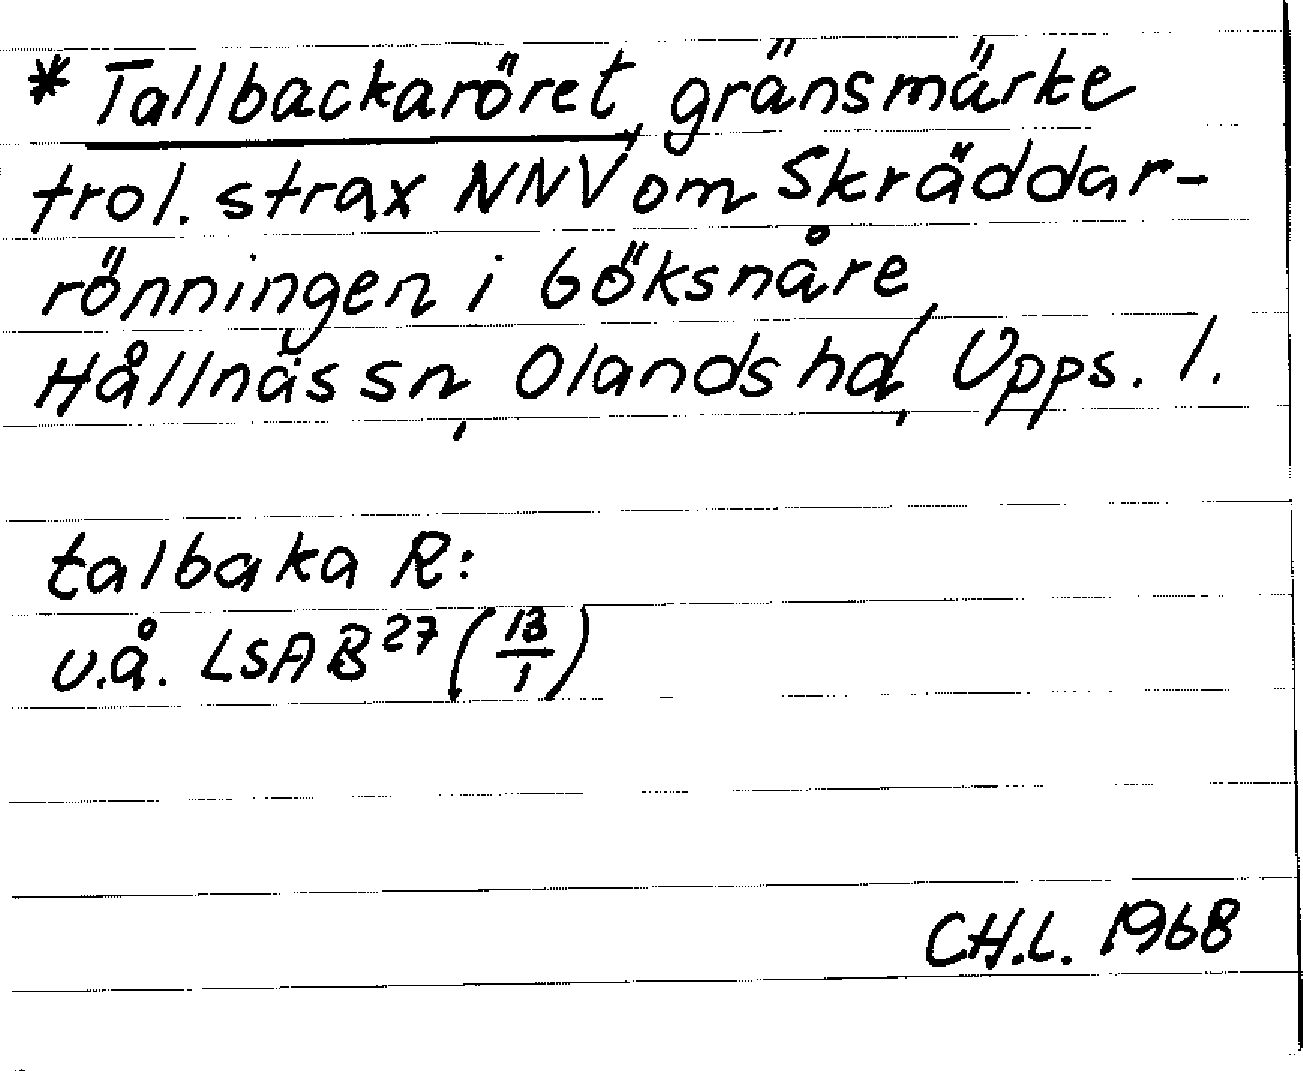 * Tallbackaröret, gränsmärke
trol. strax NNV om Skräddar-
rönningen i Göksnåre,
Hållnäs sn, Olands hd, Upps. l.
talbaka R:
u.å. LSA B27 (13/1)
CH.L. 1968